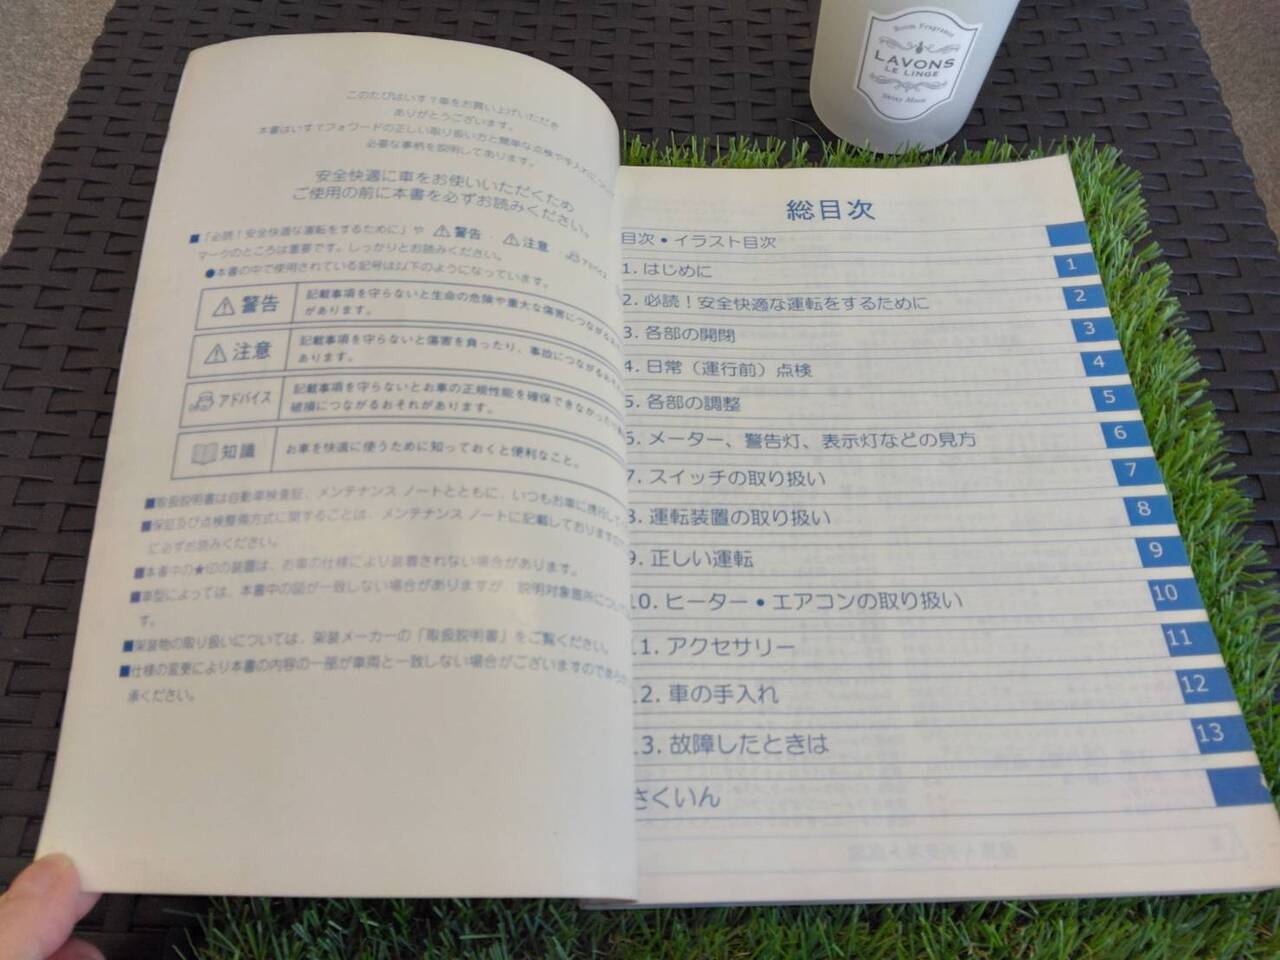 このたびはいすゞ車をお買い上げいただき
ありがとうございます。
本書はいすゞフォワードの正しい取り扱い方と簡単な点検や手入れについて
必要な事柄を説明してあります。
安全快適に車をお使いいただくため
ご使用の前に本書を必ずお読みください。
■「必読！安全快適な運転をするために」や 警告 ・ 注意 アドバイス
マークのところは重要です。しっかりとお読みください。
●本書の中で使用されている記号は以下のようになっています。
警告
記載事項を守らないと生命の危険や重大な傷害につながるおそれ
があります。
注意
記載事項を守らないと傷害を負ったり、事故につながるおそれ
あります。
アドバイス
記載事項を守らないとお車の正規性能を確保できなかったり
破損につながるおそれがあります。
知識
お車を快適に使うために知っておくと便利なこと。
■取扱説明書は自動車検査証、メンテナンス ノートとともに、いつもお車に携行して
■保証及び点検整備方式に関することは、メンテナンス ノートに記載しておりますので
に必ずお読みください。
■本書中の★印の装置は、お車の仕様により装着されない場合があります。
■車型によっては、本書中の図が一致しない場合がありますが、説明対象箇所については
す。
■架装物の取り扱いについては、架装メーカーの「取扱説明書」をご覧ください。
■仕様の変更により本書の内容の一部が車両と一致しない場合がございますので
承ください。
LAVONS
LE LINGE
Room Fragrance
Shiny Moon
総目次
目次・イラスト目次
1. はじめに 1
2. 必読！安全快適な運転をするために 2
3. 各部の開閉 3
4. 日常（運行前）点検 4
5. 各部の調整 5
6. メーター、警告灯、表示灯などの見方 6
7. スイッチの取り扱い 7
8. 運転装置の取り扱い 8
9. 正しい運転 9
10. ヒーター・エアコンの取り扱い 10
11. アクセサリー 11
12. 車の手入れ 12
13. 故障したときは 13
さくいん